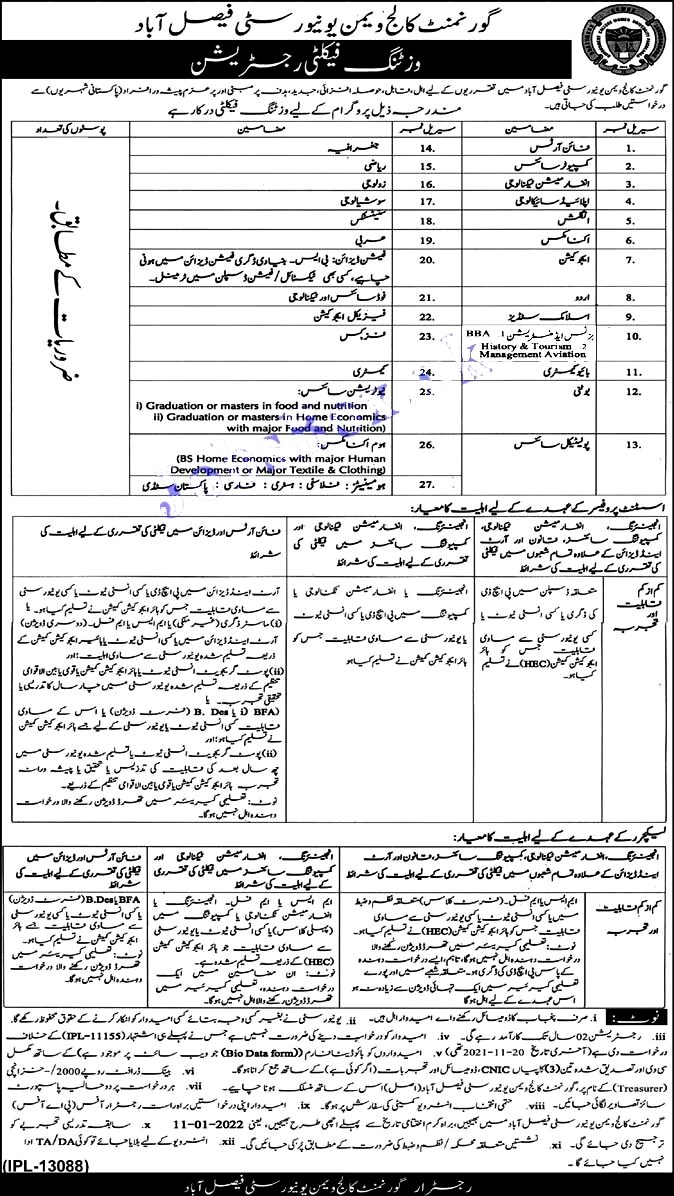 گورنمنٹ کالج ویمن یونیورسٹی فیصل آباد
وزٹنگ فیکلٹی رجسٹریشن
گورنمنٹ کالج ویمن یونیورسٹی فیصل آباد میں تقرریوں کے لیے اہل، قابل، حوصلہ افزائی، جدید، ہدف پر مبنی اور پرعزم پیشہ ور افراد (پاکستانی شہریوں) سے
درخواستیں طلب کی جاتی ہیں۔
مندرجہ ذیل پروگرام کے لیے وزٹنگ فیکلٹی درکار ہے
سیریل نمبر مضامین سیریل نمبر مضامین پوسٹوں کی تعداد
1. فائن آرٹس 14. جغرافیہ
2. کمپیوٹر سائنس 15. ریاضی
3. انفارمیشن ٹیکنالوجی 16. زولوجی
4. اپلائیڈ سائیکالوجی 17. سوشیالوجی
5. انگلش 18. سٹیٹسٹکس
6. اکنامکس 19. عربی
7. ایجوکیشن 20. فیشن ڈیزائن: بی ایس۔ بنیادی ڈگری فیشن ڈیزائن میں ہونی
چاہیے، کسی بھی ٹیکسٹائل/فیشن ڈسپلن میں ٹرمینل۔
8. اردو 21. فوڈ سائنس اور ٹیکنالوجی
9. اسلامک سٹڈیز 22. فزیکل ایجوکیشن
10. بزنس ایڈمنسٹریشن BBA 1 23. فزکس
History & Tourism 2
Management Aviation
11. بائیو کیمسٹری 24. کیمسٹری
12. بوٹنی 25. نیوٹریشن سائنس:
i) Graduation or masters in food and nutrition
ii) Graduation or masters in Home Economics
with major Food and Nutrition)
13. پولیٹیکل سائنس 26. ہوم اکنامکس:
(BS Home Economics with major Human
Development or Major Textile & Clothing)
27. ہومینیٹیز: فلاسفی، ہسٹری، فارسی، پاکستان سٹڈی
ضروریات کے مطابق۔
اسسٹنٹ پروفیسر کے عہدے کے لیے اہلیت کا معیار:
انجینئرنگ، انفارمیشن ٹیکنالوجی اور
کمپیوٹنگ سائنسز، قانون اور آرٹ
اینڈ ڈیزائن کے علاوہ تمام شعبوں میں فیکلٹی
کی تقرری کے لیے اہلیت کی شرائط
انجینئرنگ، انفارمیشن ٹیکنالوجی اور
کمپیوٹنگ سائنسز میں فیکلٹی کی
تقرری کے لیے اہلیت کی شرائط
فائن آرٹس اور ڈیزائن میں فیکلٹی کی تقرری کے لیے اہلیت کی
شرائط
کم از کم
قابلیت
اور
تجربہ
متعلقہ ڈسپلن میں پی ایچ ڈی
کی ڈگری یا کسی انسٹی ٹیوٹ یا
کسی یونیورسٹی سے مساوی
قابلیت جس کو ہائر
ایجوکیشن کمیشن (HEC) نے تسلیم
کیا ہو۔
انجینئرنگ یا انفارمیشن ٹکنالوجی یا
کمپیوٹنگ میں پی ایچ ڈی یا کسی انسٹی ٹیوٹ
یا یونیورسٹی سے مساوی قابلیت جس کو
ہائر ایجوکیشن کمیشن نے تسلیم کیا ہو
آرٹ اینڈ ڈیزائن میں پی ایچ ڈی یا کسی انسٹی ٹیوٹ یا کسی یونیورسٹی
سے مساوی قابلیت جس کو ہائر ایجوکیشن کمیشن نے تسلیم کیا ہو۔ یا
(i) ماسٹر ڈگری (غیر ملکی) یا ایم ایس یا ایم فل۔ (دوسری ڈویژن)
آرٹ اینڈ ڈیزائن میں یا کسی انسٹی ٹیوٹ یا ہائیر ایجوکیشن کمیشن کے
ذریعہ تسلیم شدہ یونیورسٹی سے مساوی اہلیت؛ اور
(ii) پوسٹ گریجویٹ انسٹی ٹیوٹ یا ہائر ایجوکیشن کمیشن یا قومی یا بین الاقوامی
تنظیم کے ذریعہ تسلیم شدہ یونیورسٹی میں چار سال کا تدریسی یا
تحقیقی تجربہ۔ یا
(i) BFA یا B. Des (فرسٹ ڈویژن) یا اس کے مساوی
قابلیت کسی انسٹی ٹیوٹ یا یونیورسٹی کے لیے جسے ہائر ایجوکیشن کمیشن
نے تسلیم کیا ہو؛ اور
(ii) پوسٹ گریجویٹ انسٹی ٹیوٹ یا تسلیم شدہ یونیورسٹی میں
چھ سال بعد کی قابلیت کی تدریس یا تحقیق یا پیشہ ورانہ
تجربہ ہائر ایجوکیشن کمیشن یا قومی یا بین الاقوامی تنظیم کے ذریعے۔
نوٹ: تعلیمی کیریئر میں تھرڈ ڈویژن رکھنے والا درخواست
دہندہ اہل نہیں ہوگا۔
لیکچرر کے عہدے کے لیے اہلیت کا معیار:
انجینئرنگ، انفارمیشن ٹیکنالوجی، کمپیوٹنگ سائنسز، قانون اور آرٹ
اینڈ ڈیزائن کے علاوہ تمام شعبوں میں فیکلٹی کی تقرری کے لیے اہلیت کی شرائط
انجینئرنگ، انفارمیشن ٹیکنالوجی اور
کمپیوٹنگ سائنسز میں فیکلٹی کی تقرری
کے لیے اہلیت کی شرائط
فائن آرٹس اور ڈیزائن میں
فیکلٹی کی تقرری کے لیے اہلیت کی
شرائط
کم از کم قابلیت
اور تجربہ
ایم ایس یا ایم فل۔ (فرسٹ کلاس) متعلقہ نظم و ضبط
میں یا کسی انسٹی ٹیوٹ یا یونیورسٹی سے مساوی
قابلیت جس کو ہائر ایجوکیشن کمیشن (HEC) نے تسلیم کیا ہو۔
نوٹ: تعلیمی کیریئر میں تھرڈ ڈویژن رکھنے والا
درخواست دہندہ اہل نہیں ہوگا، تاہم، ایسے درخواست دہندہ
کے پاس پی ایچ ڈی کی ڈگری ہو۔ متعلقہ شعبے میں اور پورے
تعلیمی کیریئر میں ایک تہائی ڈویژن سے زیادہ نہ ہو
اس عہدے کے لیے اہل ہوگا۔
ایم ایس یا ایم فل۔ انجینئرنگ یا
انفارمیشن ٹکنالوجی یا کمپیوٹنگ میں
(پہلی کلاس) یا کسی انسٹی ٹیوٹ یا یونیورسٹی
سے مساوی قابلیت جو ہائر ایجوکیشن کمیشن
(HEC) کے ذریعے تسلیم شدہ ہے۔
نوٹ: ان مضامین میں ایک
تعلیمی کیریئر میں تھرڈ
ڈویژن رکھنے والا درخواست دہندہ
اہل نہیں ہوگا۔
BFA یا B.Des (فرسٹ ڈویژن)
یا کسی انسٹی ٹیوٹ یا کسی یونیورسٹی
سے مساوی قابلیت جسے ہائر
ایجوکیشن کمیشن نے تسلیم کیا ہو۔
نوٹ: تعلیمی کیریئر میں تھرڈ
ڈویژن رکھنے والا درخواست دہندہ
اہل نہیں ہوگا۔
نوٹ: i. صرف پنجاب کا ڈومیسائل رکھنے والے امیدوار اہل ہیں۔ ii. یونیورسٹی نے بغیر کسی وجہ بتائے کسی امیدوار کو انکار کرنے کے حقوق محفوظ رکھے گا۔
iii. رجسٹریشن 02 سال تک کارآمد رہے گی۔ iv. امیدوار کو درخواست دینے کی ضرورت نہیں ہے جس نے پہلے ہی اشتہار (IPL-11155) کے خلاف
درخواست دی ہے (آخری تاریخ 20-11-2021 تھی) v. امیدواروں کو بائیو ڈیٹا فارم (Bio Data form) (جو ویب سائٹ پر موجود ہے) کے ساتھ مکمل
سی وی اور تصدیق شدہ تین (3) کاپیاں CNIC، ڈومیسائل اور تجربات (اگر کوئی ہے) کے ساتھ جمع کرنا ہوگا۔ vi. بینک ڈرافٹ روپے 2000/- خزانچی
(Treasurer) کے نام پر، گورنمنٹ کالج ویمن یونیورسٹی فیصل آباد (اصل) اس کے ساتھ منسلک ہونا چاہیے۔ vii. ہر درخواست پر دو حالیہ پاسپورٹ
سائز تصاویر لگائی جائیں۔ viii. حتمی انتخاب انٹرویو کمیٹی کی سفارش پر ہوگا۔ ix. امیدوار اپنی درخواستیں براہ راست رجسٹرار آفس (پی اے آفس)
گورنمنٹ کالج ویمن یونیورسٹی فیصل آباد میں بھیجیں، براہ کرم اختتامی تاریخ سے پہلے اچھی طرح بھیجیں، یعنی 11-01-2022 x. سابقہ تدریسی تجربے کو
ترجیح دی جائے گی۔ xi. نشستیں متعلقہ محکمہ/نظم و ضبط کی ضرورت کے مطابق پر کی جائیں گی۔ xii. انٹرویو کے لیے بلایا جائے تو کوئی TA/DA ادا
نہیں کیا جائے گا۔
(IPL-13088)
رجسٹرار گورنمنٹ کالج ویمن یونیورسٹی فیصل آباد